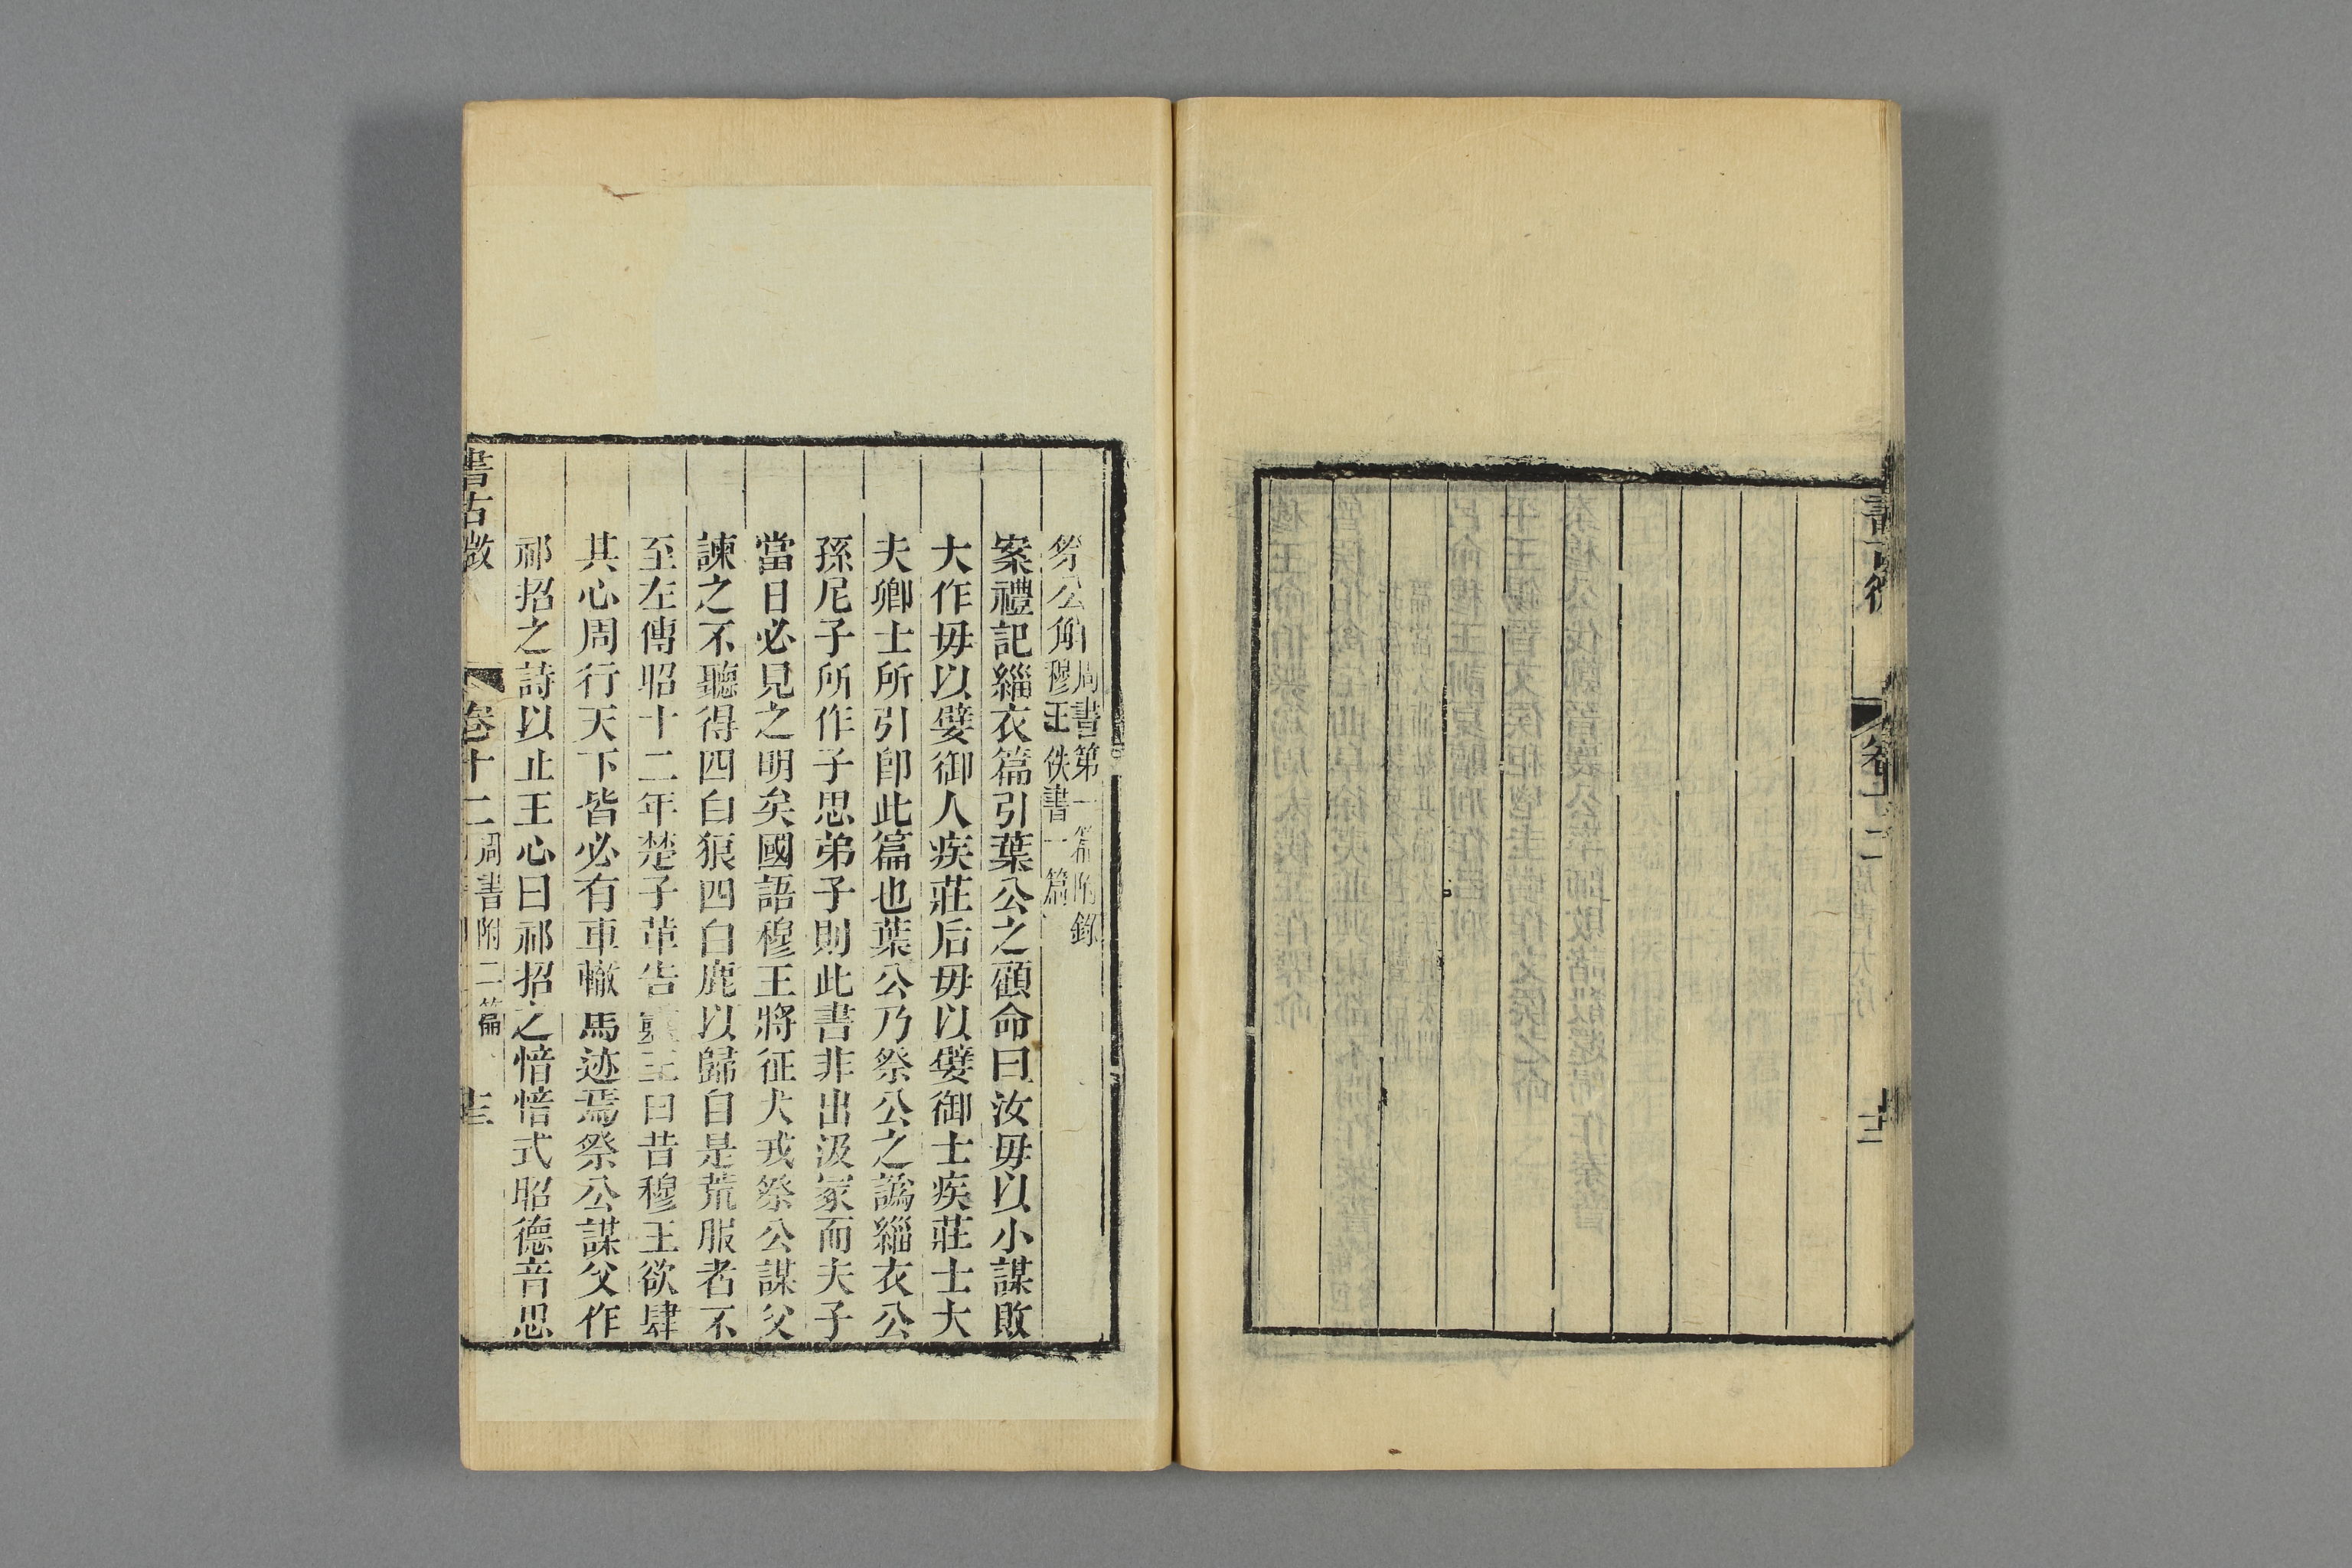 書古微
卷十二
周書大序
十二
祭公解
周書第一篇附錄
穆王佚書一篇
案禮記緇衣篇引葉公之顧命曰汝毋以小謀敗
大作毋以嬖御人疾莊后毋以嬖御士疾莊士大
夫卿士所引卽此篇也葉公乃祭公之譌緇衣公
孫尼子所作子思弟子則此書非出汲冢而夫子
當日必見之明矣國語穆王將征犬戎祭公謀父
諫之不聽得四白狼四白鹿以歸自是荒服者不
至左傳昭十二年楚子革告靈王曰昔穆王欲肆
其心周行天下皆必有車轍馬迹焉祭公謀父作
祁招之詩以止王心曰祁招之愔愔式昭德音思
書古微
卷十二
周書附二篇
十三